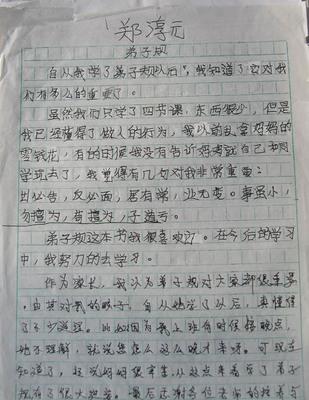 郑淳元
弟子规
自从我学了弟子规以后，我知道了它对我
们有多么的重要了。
虽然我们只学了四节课，东西很少，但是
我已经懂得了做人的行为，我以前乱拿妈妈的
零钱花，有的时候我没有告诉妈妈就自己和同
学玩去了，我觉得有几句对我非常重要：
出必告，反必面，居有常，业无变。事虽小，
勿擅为，苟擅为，子道亏。
弟子规这本书我很喜欢。在今后的学习
中，我努力的去学习。
作为家长，我认为弟子规对大家都很重要
，由其对我的孩子，自从她学了以后，真懂得
了不少道理。比如因为我上班有时候回晚点，
她不理解，就说您怎么这么晚才来呀。可现在
知道了，
现有了很大改变。最后感谢各位老师的培养与